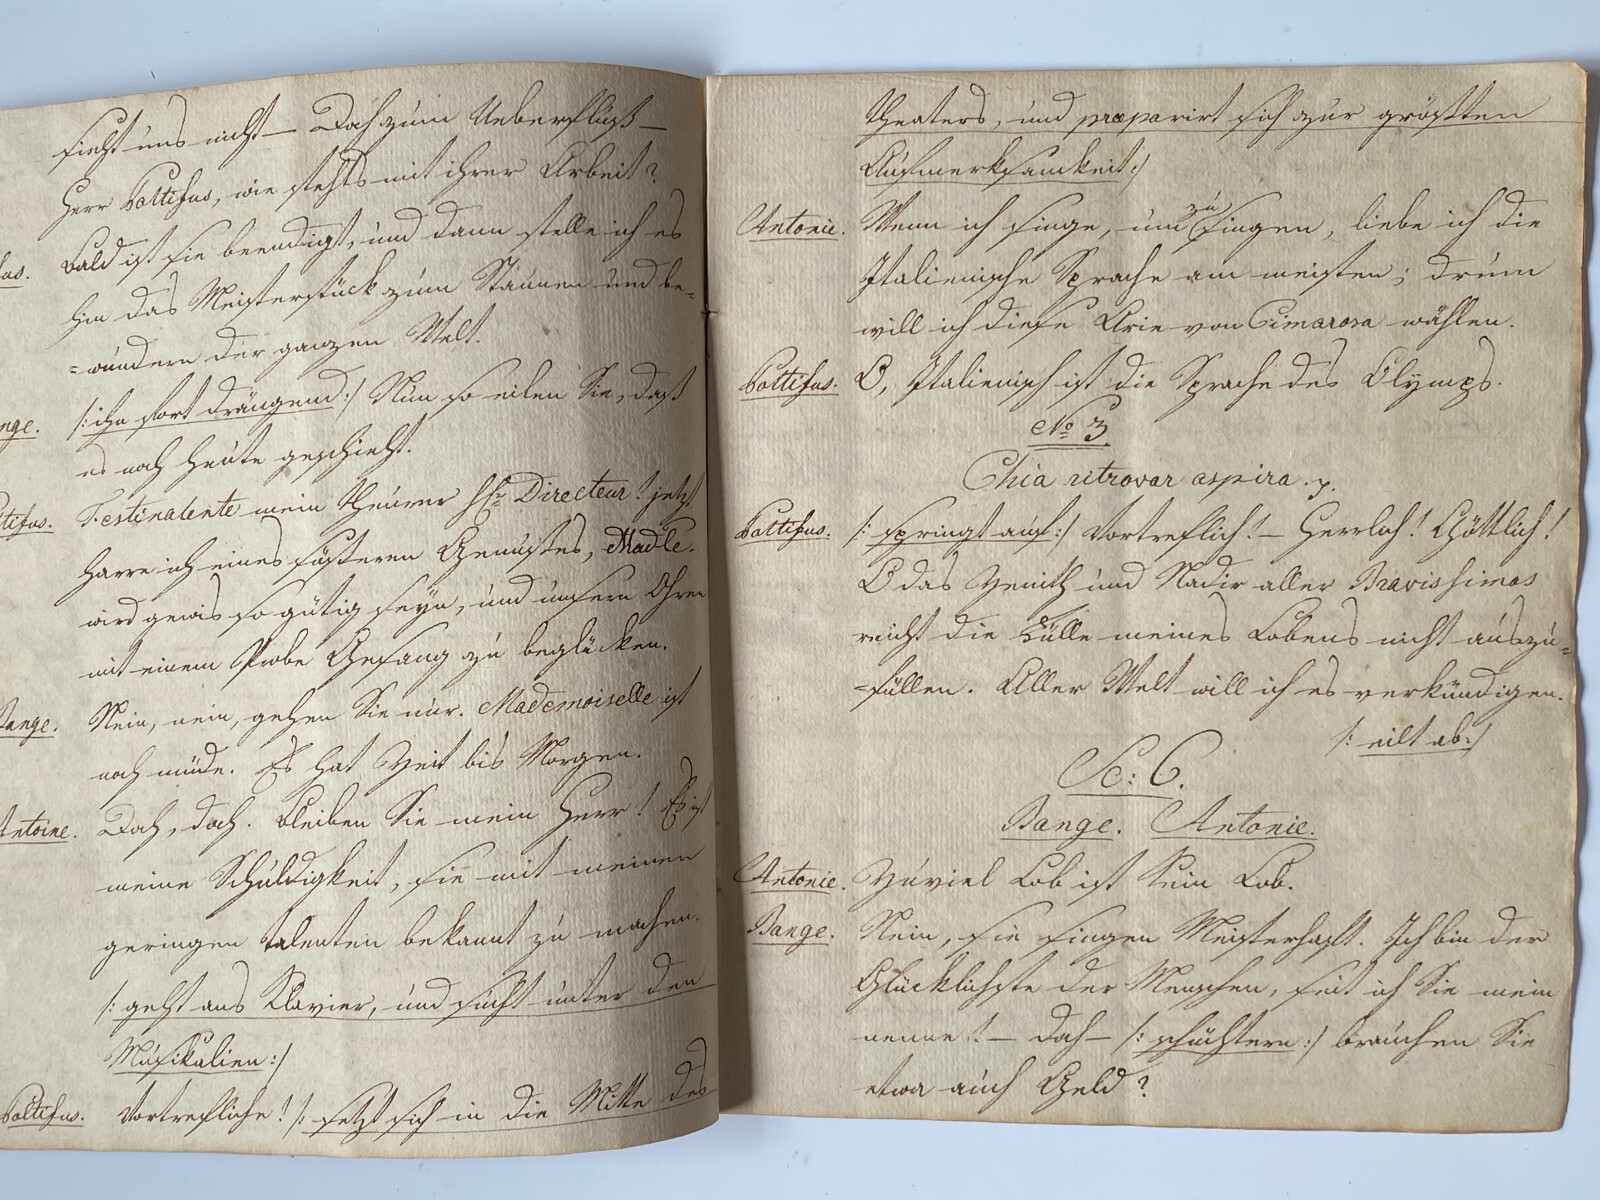 sieht uns nicht – Doch zum Ueberfluß –
Herr Poltifus, wie stehts mit ihrer Arbeit?
Bald ist sie beendigt, und dann stelle ich es
hin das Meisterstück zum Staunen und be=
=wundern der ganzen Welt.
nge. /: ihn fort drängend :/ Nun so eilen Sie, daß
es noch heute geschieht.
tifus. Festinalente mein theurer HE: Directeur! jetzt
harre ich eines süßeren Genußes, Madlle.
wird gewis so gütig seyn, und unsern Ohren
mit einem Probe Gesang zu beglücken.
Bange. Nein, nein, gehen Sie nur. Mademoiselle ist
noch müde. Es hat Zeit bis Morgen.
Antoine. Doch, doch. Bleiben Sie mein Herr! Es ist
meine Schuldigkeit, sie mit meinen
geringen talenten bekannt zu machen.
/: geht ans Klavier, und sucht unter den
Musikalien :/
Poltifus. Vortrefliche! /: setzt sich in die Mitte des
theaters, und praeparirt sich zur größten
Aufmerksamkeit :/
Antonie. Wenn ich singe, um zu singen, liebe ich die
Italienische Sprache am meisten; drum
will ich diese Arie von Cimarosa wählen.
Poltifus. O, Italienisch ist die Sprache des Olymps.
No 3
Chia ritrovar aspira.
Poltifus. /: springt auf :/ Vortreflich! – Herrlich! Göttlich!
O das Zenith und Nadir aller Bravissimos
reicht die Fülle meines Lobens nicht auszu=
=füllen. Aller Welt will ich es verkündigen.
/: eilt ab :/
Sc: 6.
Bange. Antonie.
Antonie. Zuviel Lob ist kein Lob.
Bange. Nein, sie singen Meisterhaft. Ich bin der
Glücklichste der Menschen, seit ich Sie mein
nenne! – doch – /: schüchtern :/ brauchen Sie
etwa auch Geld?